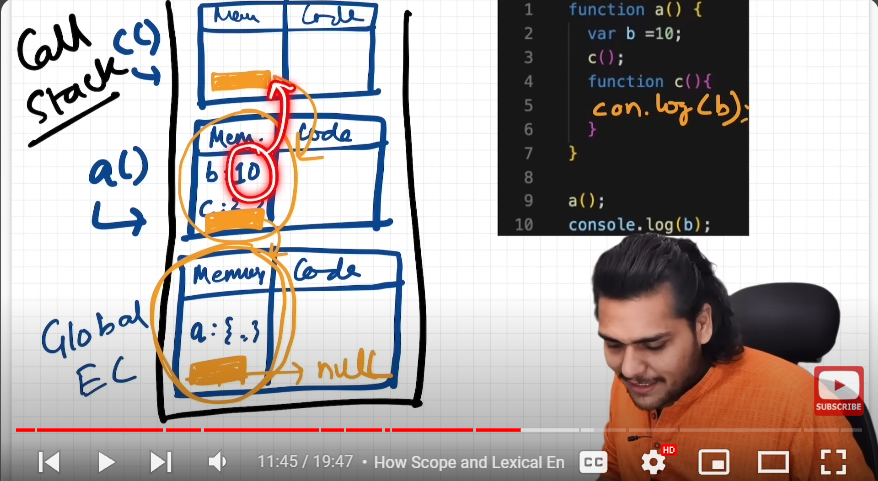 Call
Stack
c()
Mem
Code
a()
Mem.
Code
b:10
c:{..}
Global
EC
Memory
Code
a:{..}
null
1 function a() {
2 var b =10;
3 c();
4 function c(){
5 con.log(b);
6 }
7 }
8
9 a();
10 console.log(b);
SUBSCRIBE
11:45 / 19:47 • How Scope and Lexical En
CC
HD